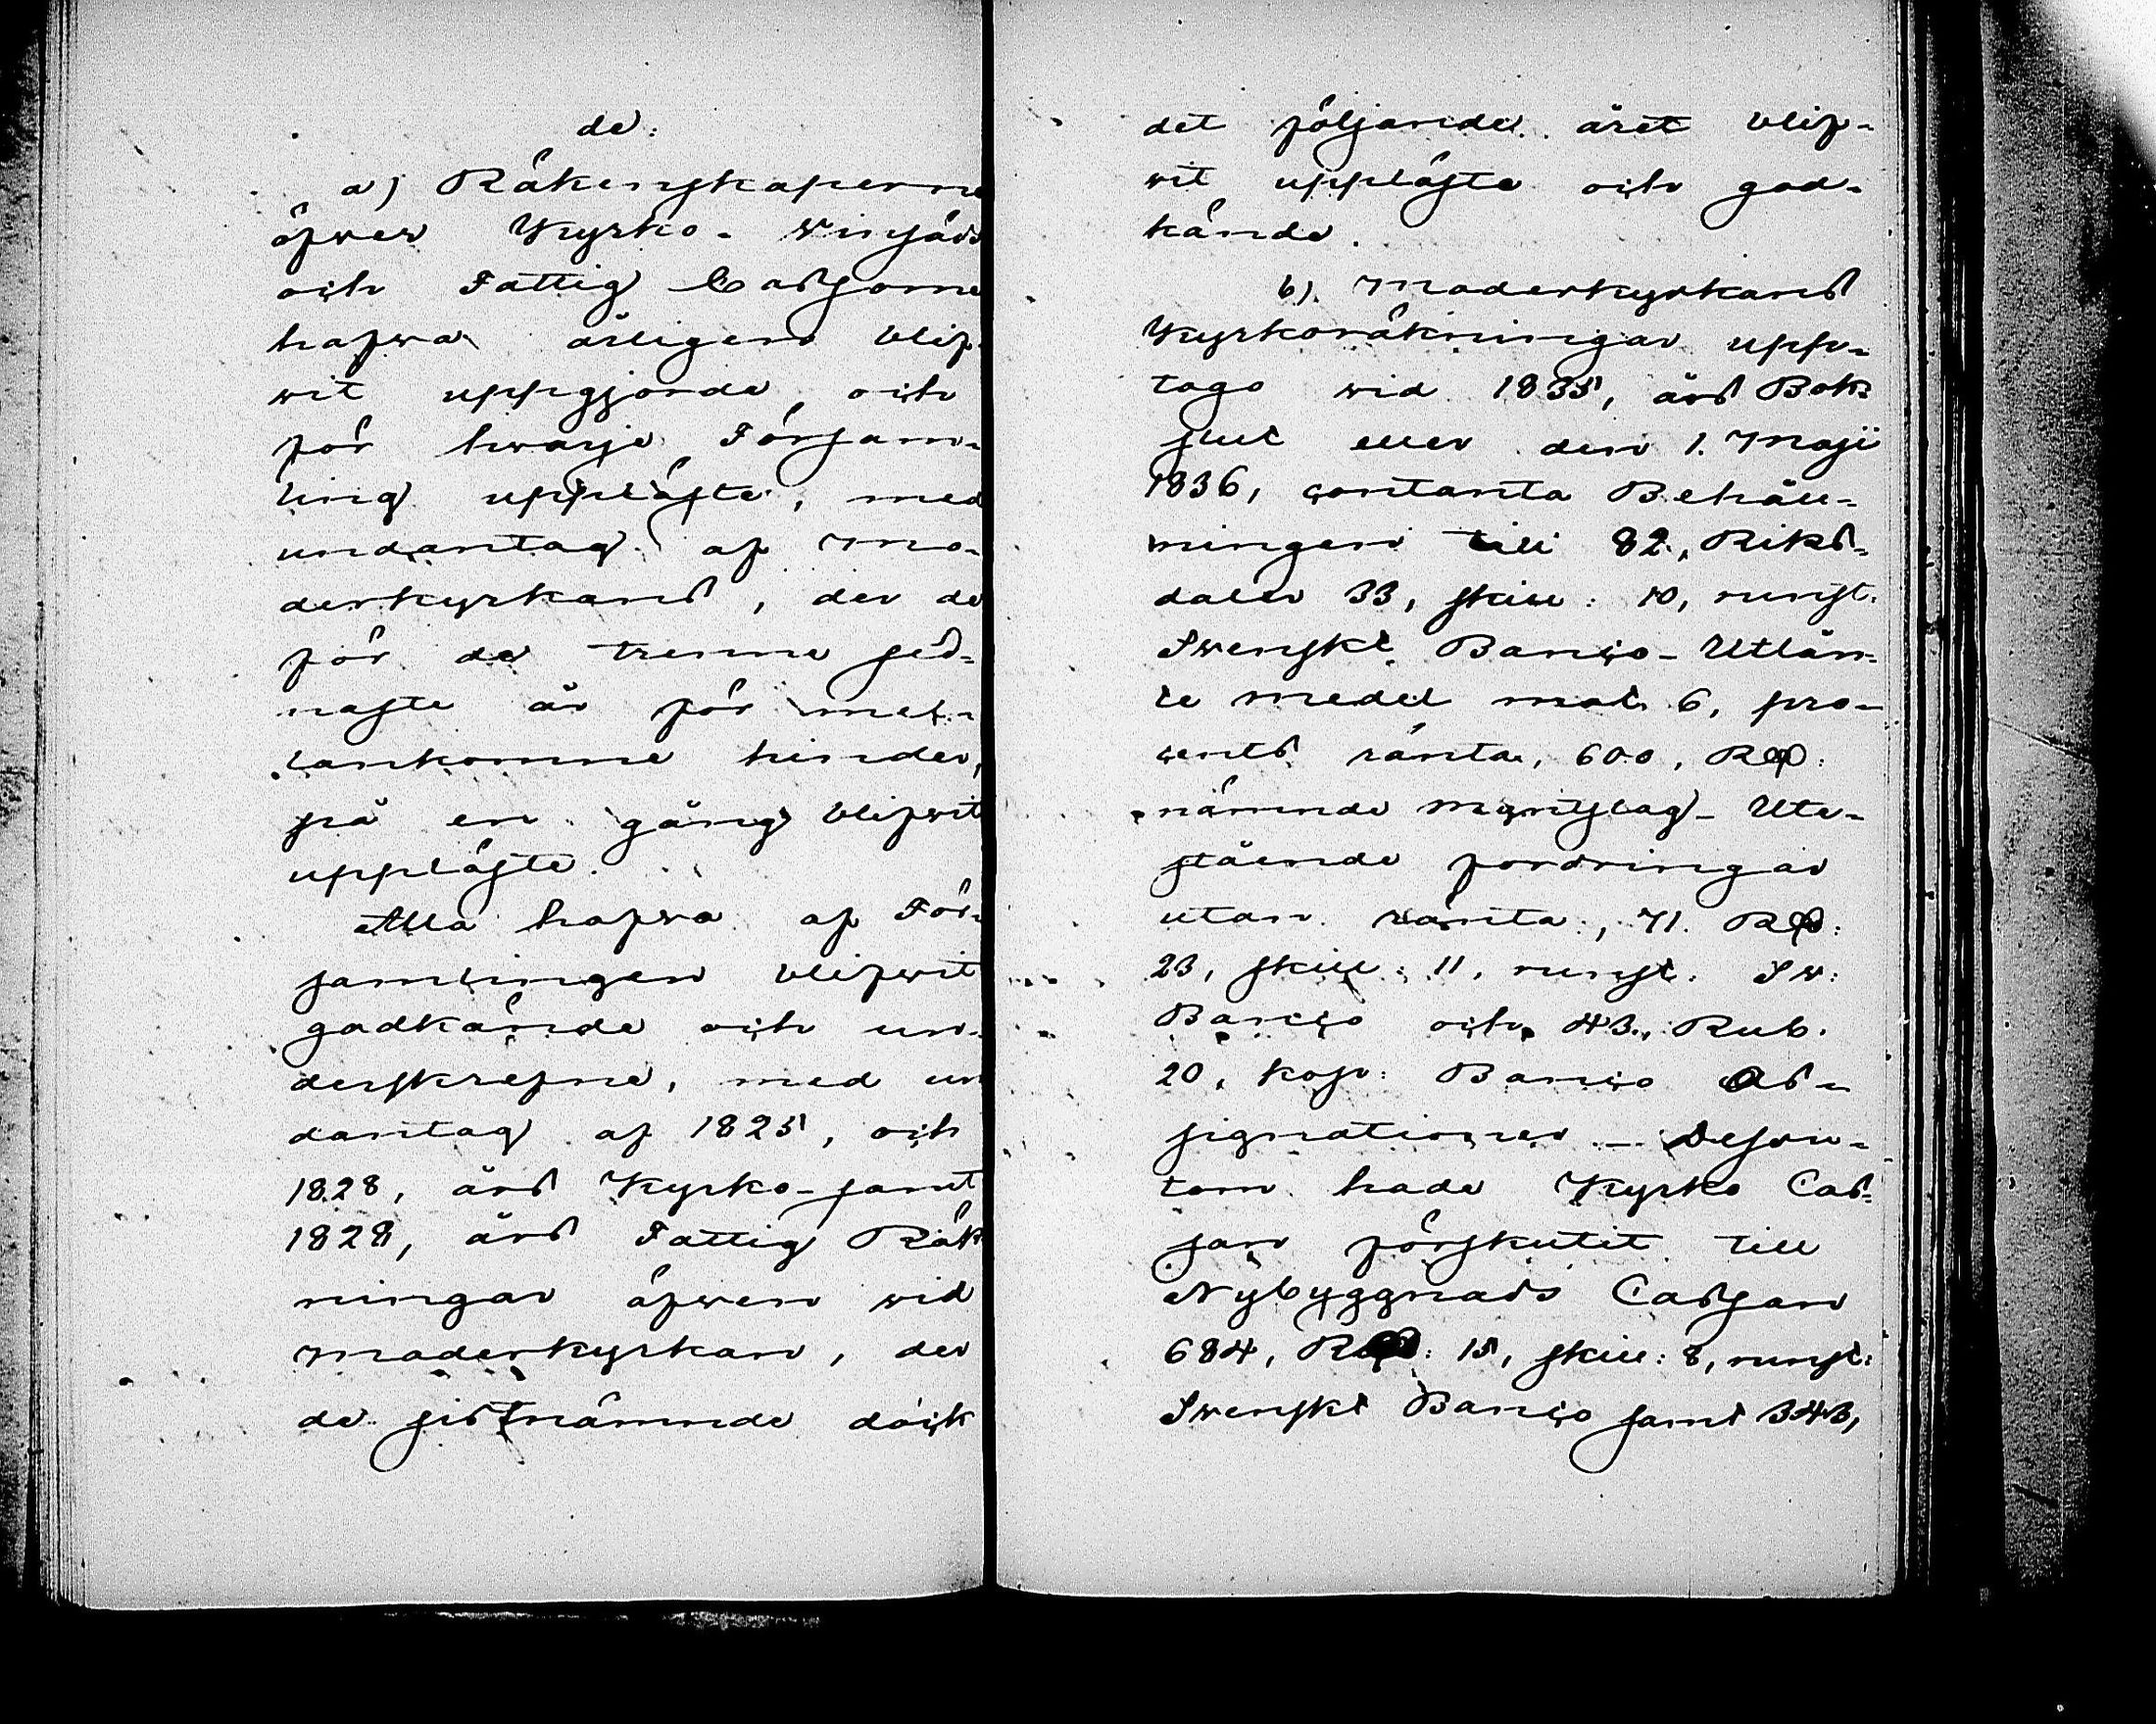 de:
a) Räkenskaperne
öfver Kyrko- Winjäds
och Fattig Cassorne
hafva årligen blif-
vit uppgjorde, och
för hvarje Försam-
ling uppläste, med
undantag af Mo-
derkyrkans, der de
för de trenne sed-
naste år för mel-
lankomne hinder,
på en gång blifvit
uppläste.
Alla hafva af För-
samlingen blifvit
godkände och un-
derskrefne, med un
dantag af 1825, och
1828, års Kyrko-samt
1828, års Fattig Räk
ningar äfven vid
Moderkyrkan, der
de sistnämnde dock
det följande året blif-
vit uppläste och god-
kände.
b). Moderkyrkans
Kyrkoräkningar upp-
togo vid 1835, års Bok-
slut eller den 1. Maji
1836, contanta Behåll-
ningen till 82, Riks-
daler 33, skill: 10, runst.
Svenskt Banco- Utlån-
te medel mot 6, pro-
cents ränta, 600, Rd:
nämnde myntslag- Ute-
stående fordringar
utan ränta, 71. Rd:
23, skill: 11, runst. Sv:
Banco och 43, Rub.
20, kop: Banco As-
signationer - Dessu-
tom hade Kyrko Cas-
san förskutit till
Nybyggnads Cassan
684, Rd: 15, skill: 8, runst:
Svenskt Banco samt 343,